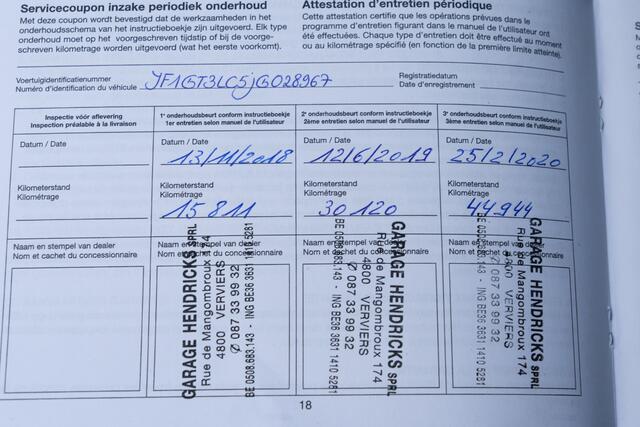 Servicecoupon inzake periodiek onderhoud
Met deze coupon wordt bevestigd dat de werkzaamheden in het
onderhoudsschema van het instructieboekje zijn uitgevoerd. Elk type
onderhoud moet op het voorgeschreven tijdstip of bij de voorge-
schreven kilometrage worden uitgevoerd (wat het eerste voorkomt).
Attestation d'entretien périodique
Cette attestation certifie que les opérations prévues dans le
programme d'entretien figurant dans le manuel de l'utilisateur ont
été effectuées. Chaque type d'entretien doit être effectué au moment
ou au kilométrage spécifié (en fonction de la première limite atteinte).
Voertuigidentificatienummer
Numéro d'identification du véhicule
JF1GT3LC5JG028967
Registratiedatum
Date d'enregistrement
Inspectie vóór aflevering
Inspection préalable à la livraison
1e onderhoudsbeurt conform instructieboekje
1er entretien selon manuel de l'utilisateur
2e onderhoudsbeurt conform instructieboekje
2ème entretien selon manuel de l'utilisateur
3e onderhoudsbeurt conform instructieboekje
3ème entretien selon manuel de l'utilisateur
Datum / Date
Datum / Date
13/11/2018
Datum / Date
12/6/2019
Datum / Date
25/2/2020
Kilometerstand
Kilométrage
Kilometerstand
Kilométrage
15 811
Kilometerstand
Kilométrage
30 120
Kilometerstand
Kilométrage
44.944
Naam en stempel van dealer
Nom et cachet du concessionnaire
Naam en stempel van dealer
Nom et cachet du concessionnaire
GARAGE HENDRICKS SPRL
Rue de Mangombroux 174
4800 VERVIERS
✆ 087 33 99 32
BE 0508.683.143 - ING BE36 3631 1410 5281
Naam en stempel van dealer
Nom et cachet du concessionnaire
GARAGE HENDRICKS SPRL
Rue de Mangombroux 174
4800 VERVIERS
✆ 087 33 99 32
BE 0508.683.143 - ING BE36 3631 1410 5281
Naam en stempel van dealer
Nom et cachet du concessionnaire
GARAGE HENDRICKS SPRL
Rue de Mangombroux 174
4800 VERVIERS
✆ 087 33 99 32
BE 0508.683.143 - ING BE36 3631 1410 5281
18